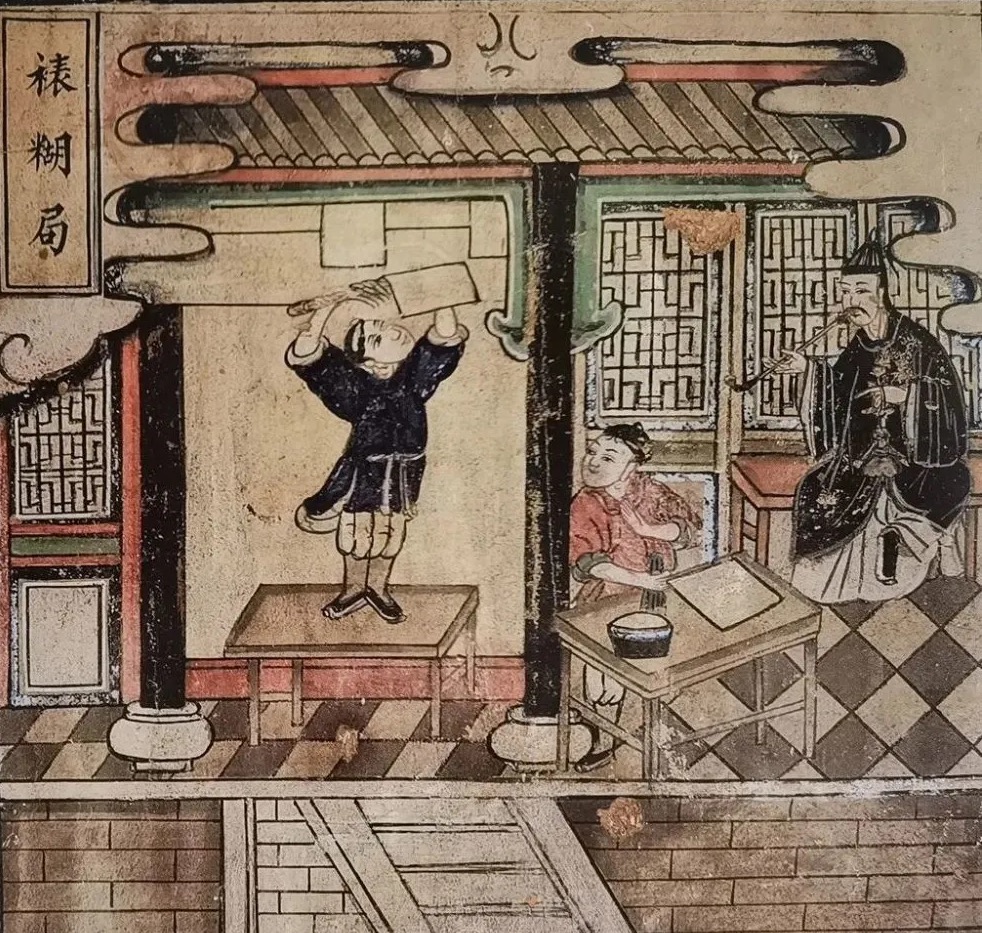 裱糊局